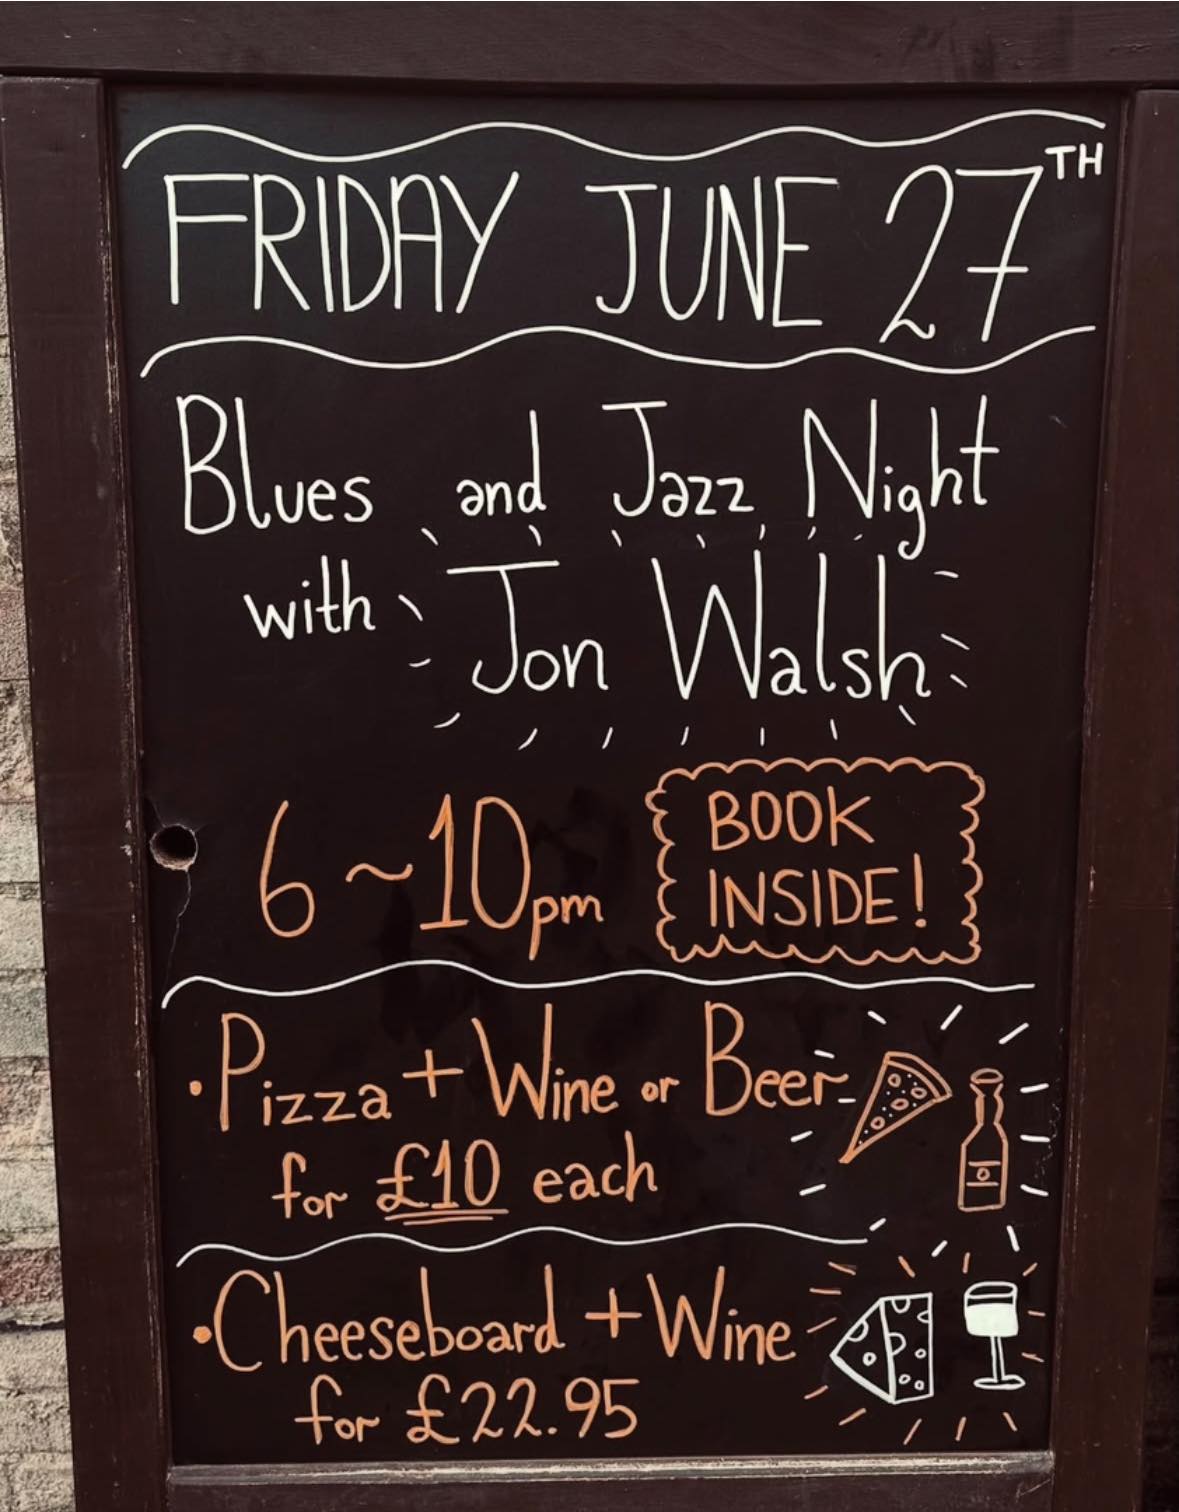 FRIDAY JUNE 27TH
Blues and Jazz Night
with Jon Walsh
6~10pm
BOOK
INSIDE!
•Pizza + Wine or Beer
for £10 each
•Cheeseboard + Wine
for £22.95